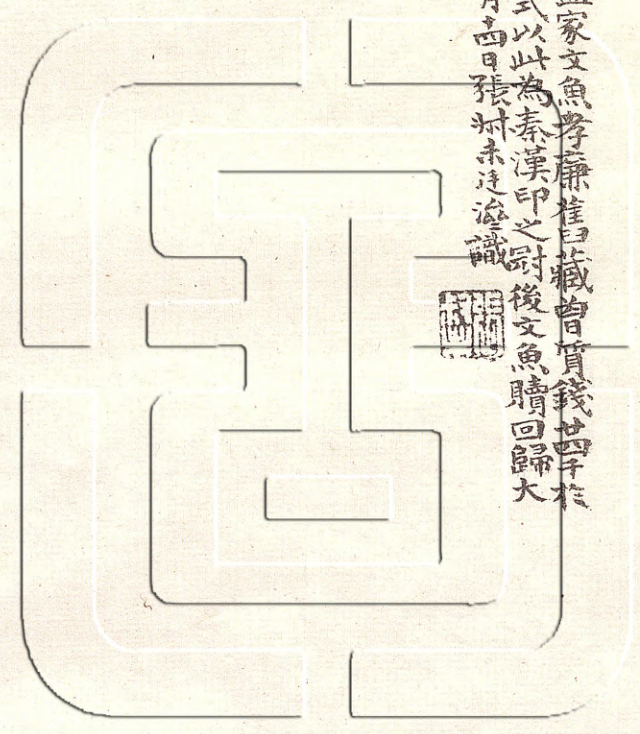 家文魚孝廉舊藏曾質錢廿四千於
式以此為秦漢印之冠後文魚贖回歸大
月十四日張叔未廷濟識